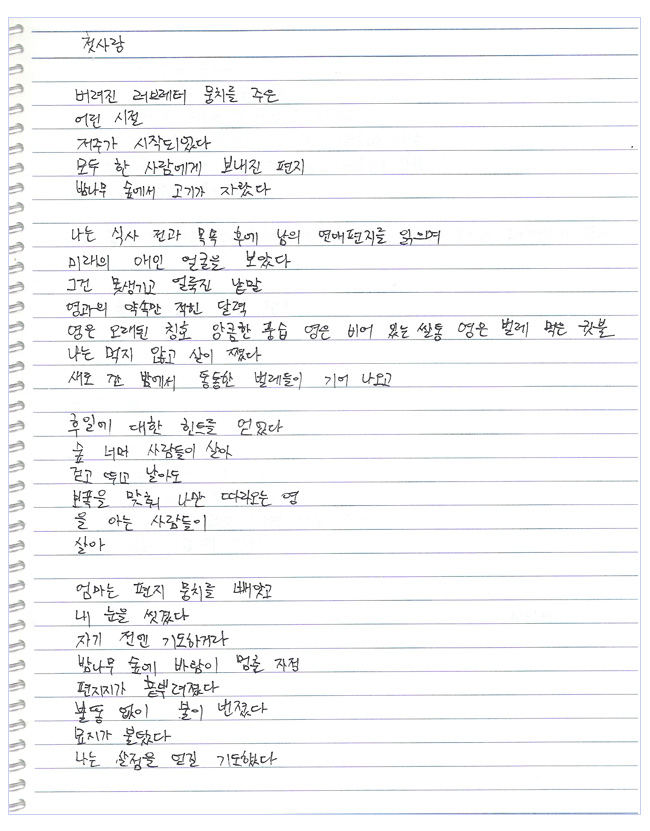 첫사랑
버려진 러브레터 뭉치를 주운
어린 시절
저주가 시작되었다
모두 한 사람에게 보내진 편지
밤나무 숲에서 고기가 자랐다
나는 식사 전과 목욕 후에 남의 연애편지를 읽으며
미래의 애인 얼굴을 보았다
그건 못생기고 얼룩진 낱말
영과의 약속만 적힌 달력
영은 오래된 칭호 앙큼한 풍습 영은 비어 있는 쌀통 영은 벌레 먹은 귓불
나는 먹지 않고 살이 쪘다
새로 깐 밤에서 통통한 벌레들이 기어 나오고
후일에 대한 힌트를 얻었다
숲 너머 사람들이 살아
걷고 뛰고 날아도
보폭을 맞춰 나만 따라오는 영
을 아는 사람들이
살아
엄마는 편지 뭉치를 빼앗고
내 눈을 씻겼다
자기 전엔 기도하거라
밤나무 숲에 바람이 멎을 자정
편지지가 흩뿌려졌다
불똥 없이 불이 번졌다
묘지가 불탔다
나는 살점을 얻길 기도했다